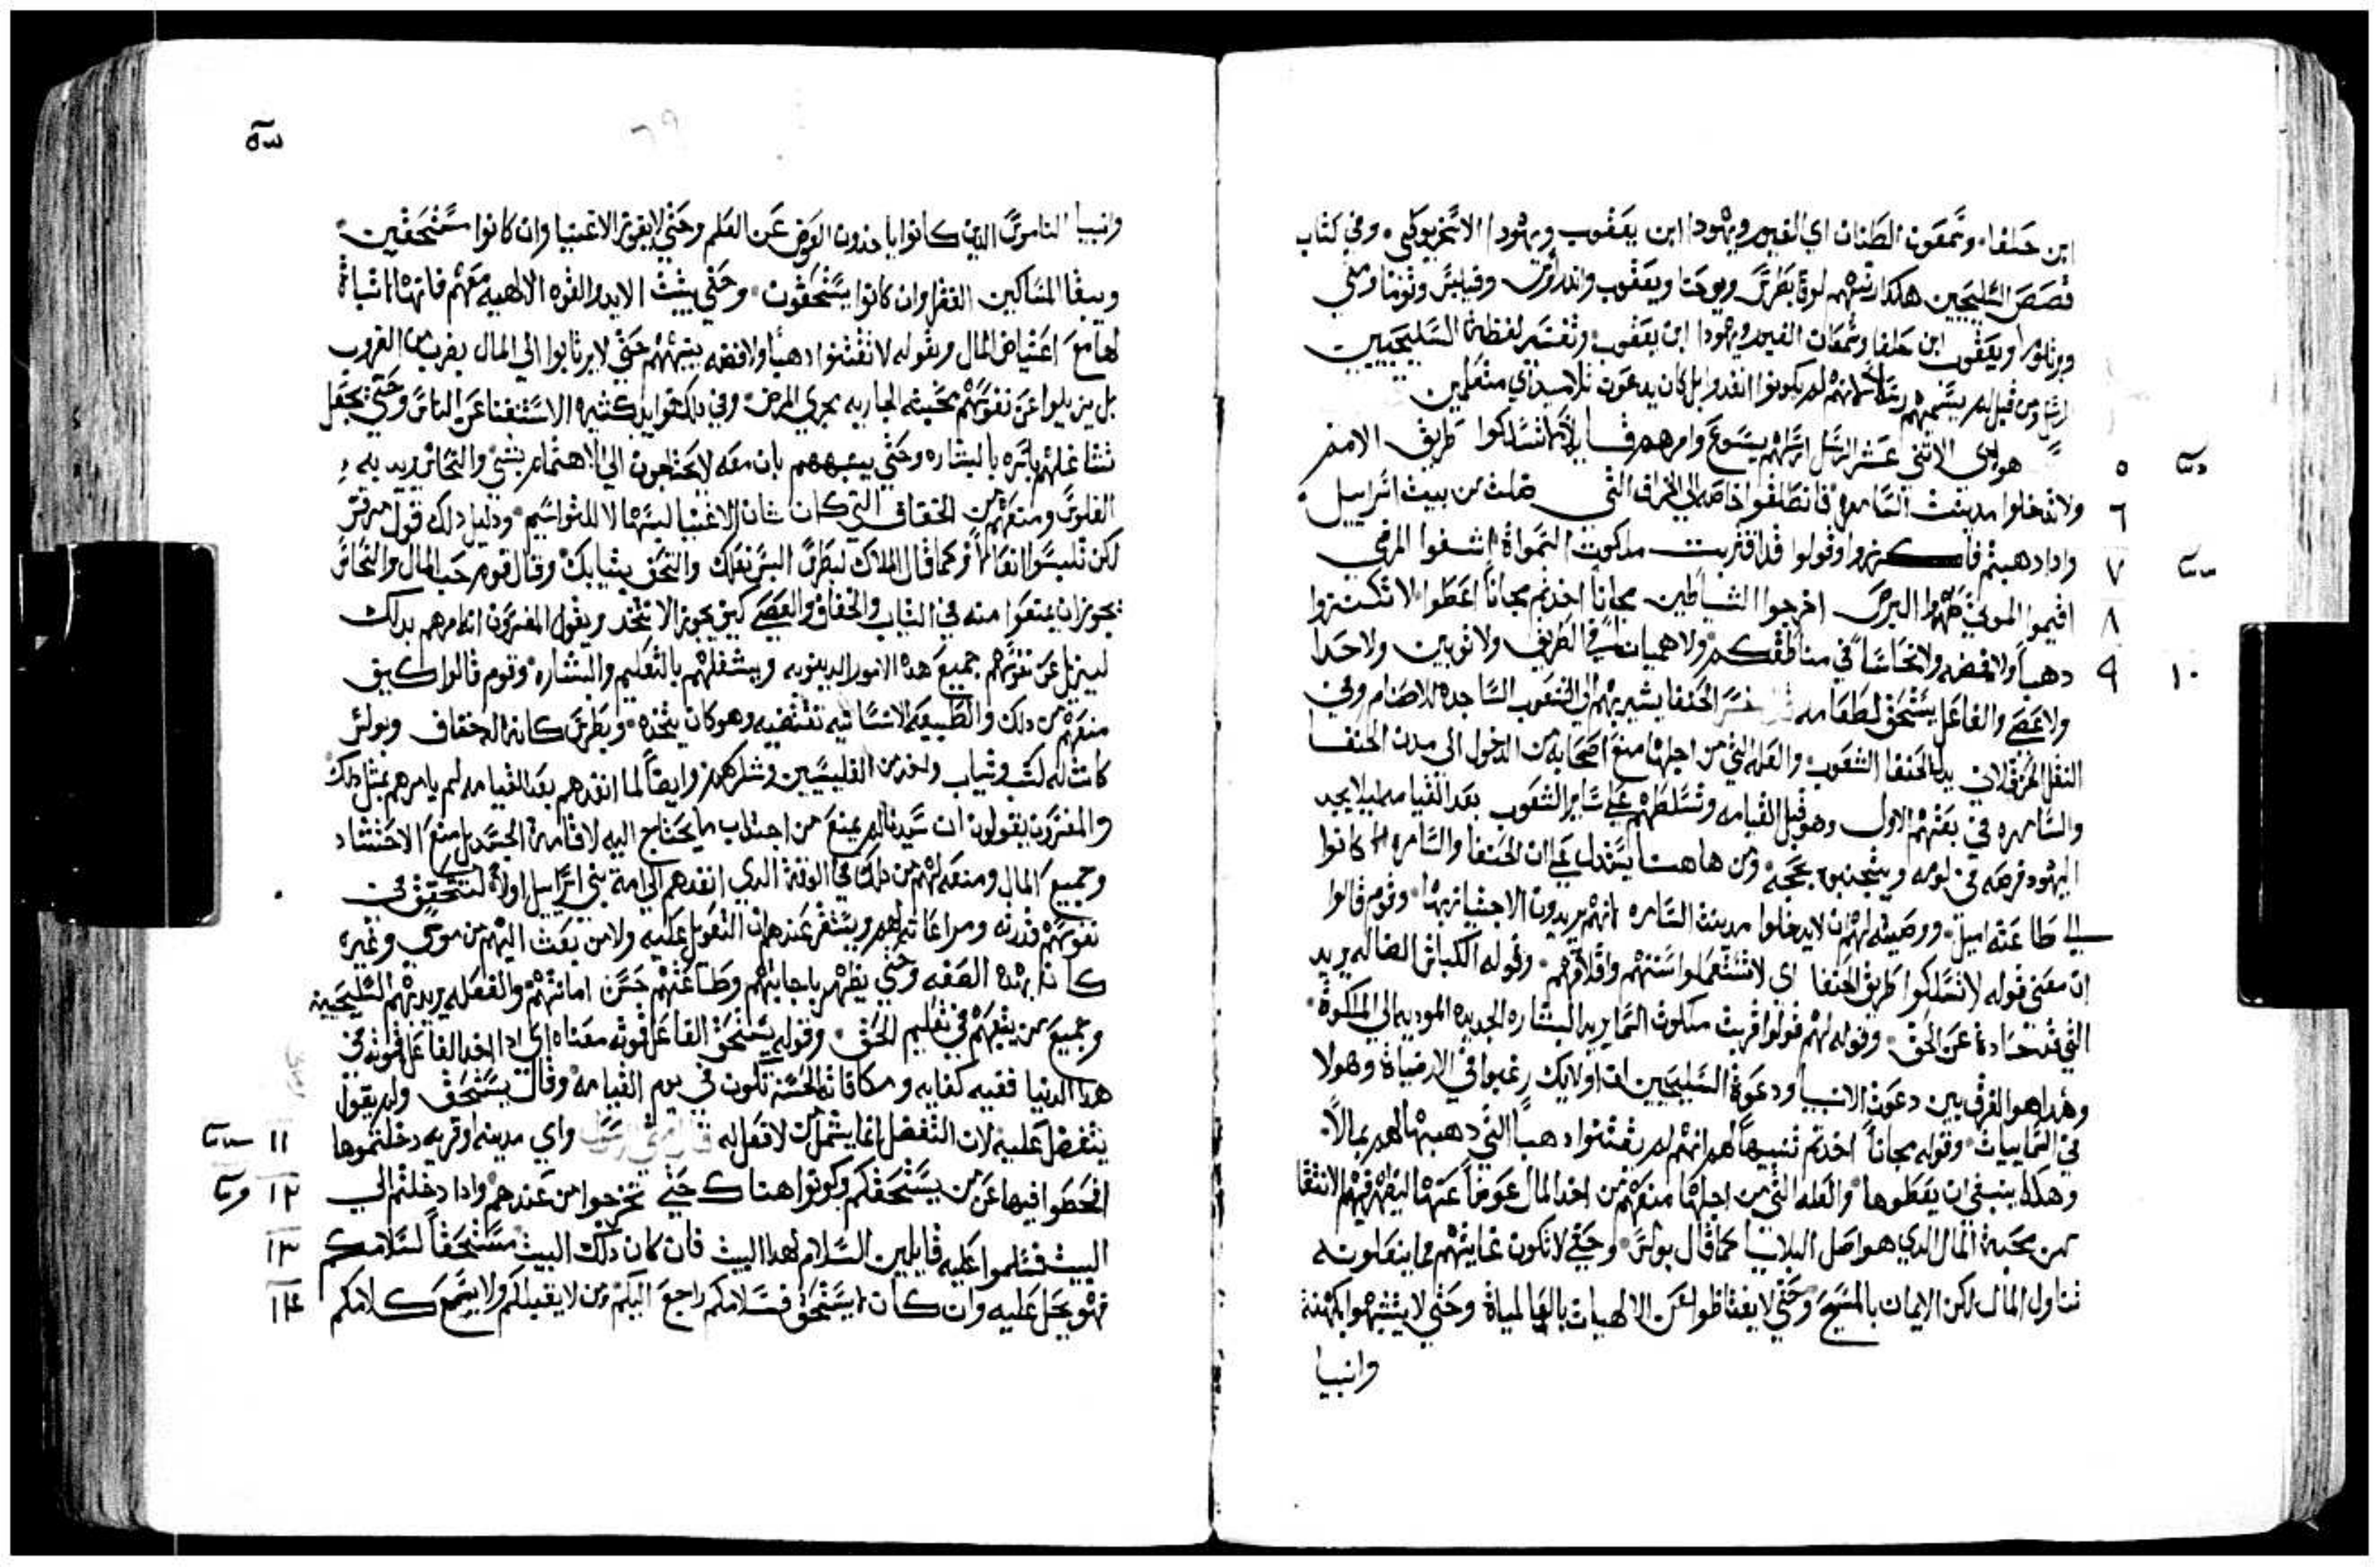 ابن حلفا وشمعون الطنان اي الغيور ويهودا ابن يعقوب ويهودا الاسخريوطي وفي كتاب
قصص السليحيين هكدا رتبهم لوقا بطرس ويوحنا ويعقوب واندراوس وفيلبس وتوما ومتي
وبرتلوما ويعقوب ابن حلفا وشمعان الغيور ويهودا ابن يعقوب وتفسير لفظة السليحيين
الرسل ومن قبل لم يسميهم رسلا لانهم لم يكونوا انفدوا بل كان يدعون تلاميد اي متعلمين
هولاي الاثني عشر الرسل ارسلهم يسوع وامرهم قايلا لا تسلكوا طريق الامم
٥
ولا تدخلوا مدينة السامره فانطلقوا خاصه الي الخراف التي ضلت من بيت اسراييل
٦
وادا دهبتم فاكرزوا وقولوا قد اقتربت ملكوت السمواة اشفوا المرضي
٧
اقيموا الموتي طهروا البرص اخرجوا الشياطين مجانا اخدتم مجانا اعطوا لا تكنزوا
٨
دهبا ولا فضه ولا نحاسا في مناطقكم ولا هميان في الطريق ولا ثوبين ولا حدا
٩ ١٠
ولا عصي والفاعل يستحق لطعامه الحنفا يشير بهم الي الشعوب الساجده للاصنام وفي
النقل الحرقلاني بدل الحنفا الشعوب والعله التي من اجلها منع اصحابه من الدخول الي مدن الحنفا
والسامره في بعثهم الاول وهو قبل القيامه وتسلطهم علي ساير الشعوب بعد القيامه ليلا يجد
اليهود فرصه في لومه ويتجنبوه بحجة ومن هاهنا يستدل علي ان الحنفا والسامره كانوا
الي طاعته اميل ووصيته لهم ان لا يدخلوا مدينة السامره لانهم يريدون الاجتياز بها وقوم قالوا
ان معني قوله لا تسلكوا طريق الحنفا اي لا تستعملوا سننهم واخلاقهم وقوله الكباش الضاله يريد
التي قد حادة عن الحق وقوله لهم قولوا قربت ملكوت السما يريد البشاره الجديده الموديه الي الملكوة
وهدا هو الفرق بين دعوة الانبيا ودعوة السليحيين ان اولايك رغبوا في الارضياة وهولا
في السماييات وقوله مجانا اخدتم تنبيها لهم انهم لم يقتنوا دهبا التي دهبها لهم بمالا
وهكدا ينبغي ان يعطوها والعله التي من اجلها منعهم من اخد المال عوضا عنها ليظهر فيهم الانتقا
من محبة المال الدي هو اصل البلايا كما قال بولس وحتي لا تكون غايتهم فيما يفعلونه
تناول المال لكن الايمان بالمسيح وحتي لا يعتاظوا عن الالهيات بالعالمياة وحتي لا يتشبهوا بكهنة
وانبيا
وانبيا الناموس الدين كانوا ياخدون العوض عن العلم وحتي لا يفوز الاغنيا وان كانوا مستحقين
ويبقا المساكين الفقرا وان كانوا يستحقون وحتي يثبت الايد والقوه الالاهيه معهم فانها لا تباة
لها مع اعتياض المال وبقوله لا تقتنوا دهبا ولا فضه ينبههم حتي لا يرتابوا الي المال بضرب من الضروب
بل يزيلوا عن نفوسهم محبته الجاريه مجري المرض وفي دلك فوايد كثيره الاستغنا عن الناس وحتي يجعل
تشاغلهم باسره بالبشاره وحتي ينبههم بان معه لا يحتاجون الي الاهتمام بشي والنحاس يريد به
الفلوس ومنعهم من الخفاف التي كان شان الاغنيا لبسها لا للتواسيم ودليل دلك قول مرقس
لكن تلبسوا نعالا وكما قال الملاك لبطرس البس نعلك والتحف بثيابك وقال قوم حب المال والنحاس
يجوز ان يمنعوا منه في الثياب والخفاف والعصي كيف يجوز الا يتخد ويقول المفسرون انه امرهم بدلك
ليزيل عن نفوسهم جميع هده الامور الدنيويه ويشغلهم بالتعليم والبشاره وقوم قالوا كيف
منعهم من دلك والطبيعه الانسانيه تقتضيه وهو كان يتخده وبطرس كان له خفاف وبولس
كانت له كتب وثياب واخد من الفليسيين وشكرهم وايضا لما انفدهم بعد القيامه لم يامرهم بمثل دلك
والمفسرون يقولون ان سيدنا لم يمنع من اجتلاب ما يحتاج اليه لاقامة الجسد بل منع الاحتشاد
وجميع المال ومنعه لهم من دلك في الوقت الدي انفدهم الي امة بني اسراييل اولا لتتحقق في
نفوسهم قدرته ومراعاته لهم ويستقر عندهم ان التعويل عليه ولا من بعث اليهم من موسي وغيره
كانه بهده الصفه وحتي يظهر باجابتهم وطاعتهم حسن امانتهم والفعله يريد بهم السليحيين
وجميع من يتبعهم في تعليم الحق وقوله يستحق الفاعل قوته معناه اي ادا اخد الفاعل قوته في
هدا الدنيا ففيه كفايه ومكافاته الحسنه تكون في يوم القيامه وقال يستحق ولم يقول
يتفضل عليه لان التفضل انما يشمل من لا فعل له واي مدينه او قريه دخلتموها
١١
افحطوا فيها عن من يستحقكم وكونوا هناك حتي تخرجوا من عندهم وادا دخلتم الي
١٢
البيت فسلموا عليه قايلين السلام لهدا البيت فان كان دلك البيت مستحقا لسلامكم
١٣
فهو يحل عليه وان كان لا يستحق فسلامكم راجع اليكم ومن لا يقبلكم ولا يسمع كلامكم
١٤